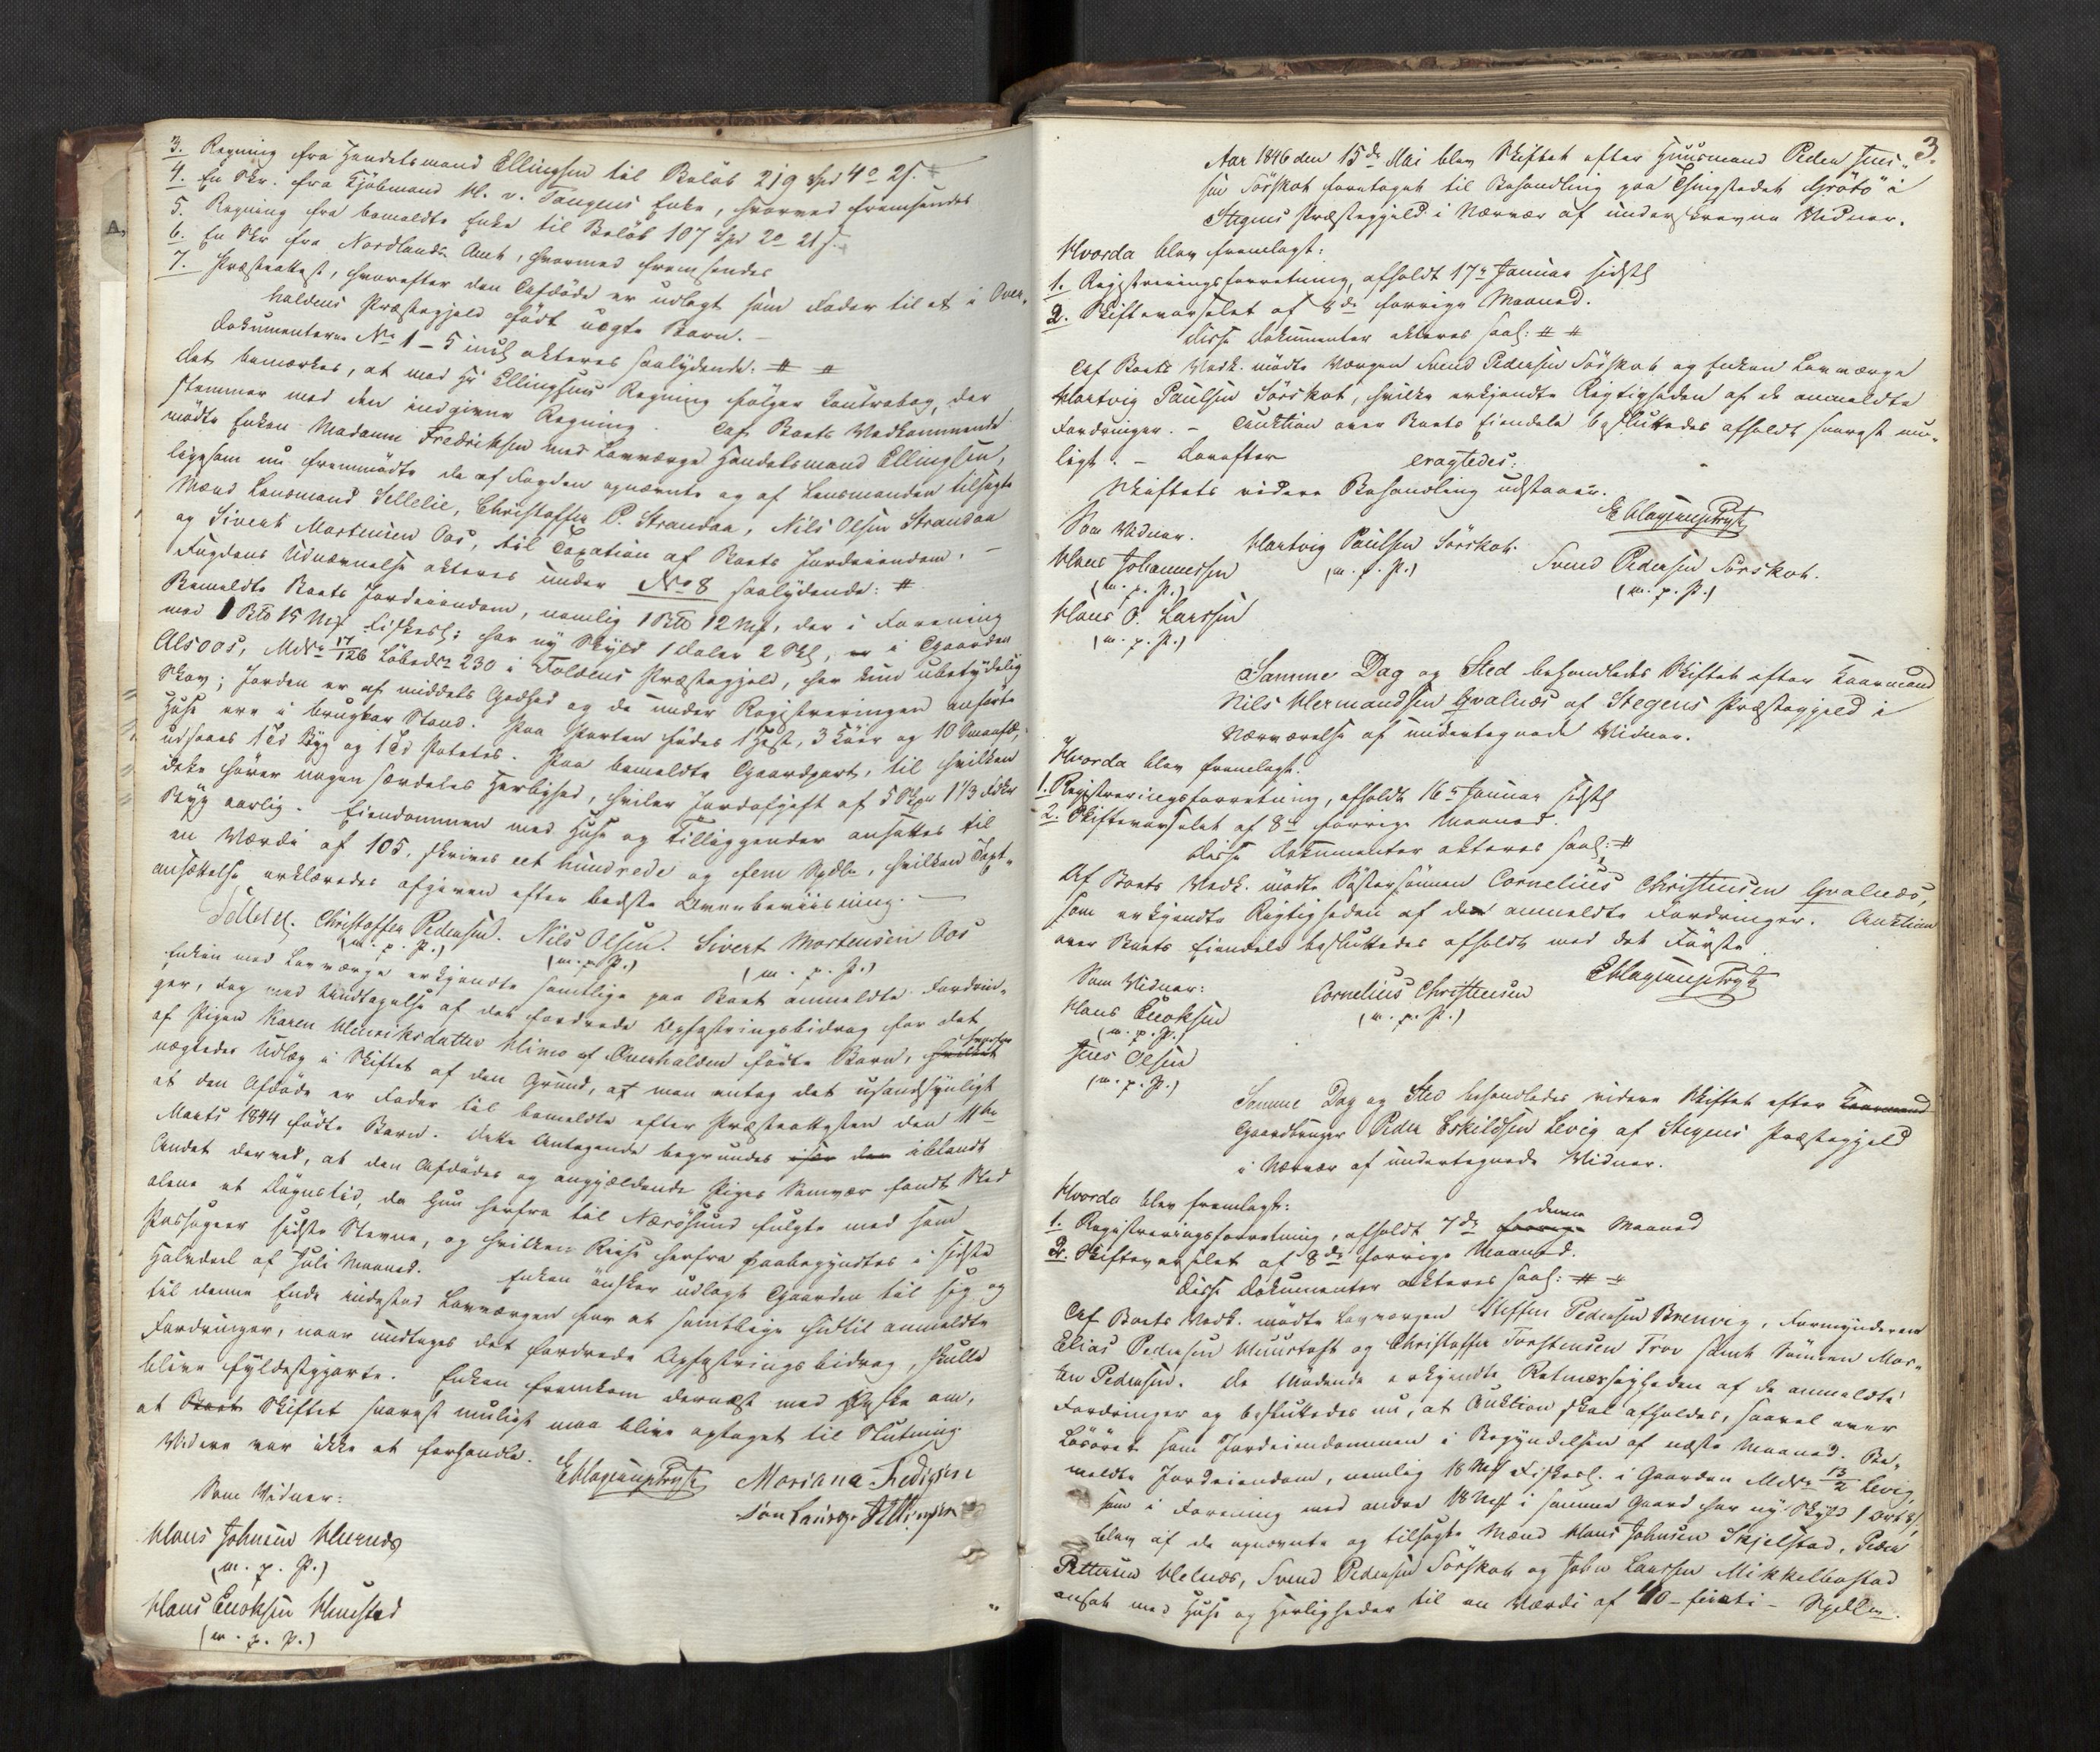 3. Regning fra Handelsmand Ellingsen til Beløb 219 Spd 4 o 2 s.
4. En Skr. fra Kjøbmand H. v. Tangens Enke, hvorved fremsendes
5. Regning fra bemeldte Enke til Beløb 107 Spd 2 o 21 s.
6. En Skr fra Nordlands Amt, hvormed fremsendes
7. Præsteattest, hvorefter den Afdöde er udlagt som Fader til et i Over-
haldens Præstegjeld födt uægte Barn. –
Dokumenterne No 1 – 5 incl akteres saalydende: # #
Det bemærkes, at med Hr Ellingsens Regning følger Contrabog, der
stemmer med den indgivne Regning. Af Boets Vedkommende
mødte Enken Madame Fredriksen med Laugværge Handelsmand Ellingsen,
ligesom nu fremmødte de af Fogden opnævnte og af Lensmanden tilsagte
Mænd Lensmand Sellelie, Christoffer P. Strandaa, Nils Olsen Strandaa
og Sivert Mortensen Aas, til Taxation af Boets Jordeiendom. –
Fogdens Udnævnelse akteres under No 8 saalydende: #
Bemeldte Boets Jordeiendom, nemlig 1 Pd 12 Mk, der i Forening
med 1 Pd 15 Mk Fiskesl: har ny Skyld 1 Daler 2 Skl, er i Gaarden
Alsoos, MNr 17/126 Løbenr 230 i Foldens Præstegjeld, har kun ubetydelig
Skov; Jorden er af middels Godhed og de under Registreringen anførte
Huse ere i brugbar Stand. Paa Parten födes 1 Hest, 3 Köer og 10 Smaafæ,
udsaaes 1 Td Byg og 1 Td Potetes. Paa bemeldte Gaardpart, til hvilken
ikke hörer nogen særdeles Herlighed, hviler Jordafgift af 5 Skpr 1 1/3 Fdkr
Byg aarlig. Eiendommen med Huse og Tilliggender ansættes til
en Værdi af 105, skriver eet hundrede og fem Spdlr, hvilken Taxt-
ansættelse erklæredes afgiven efter bedste Overbeviisning. –
Sellelie. Christoffer Pedersen. Nils Olsen. Sivert Mortensen Aas
(m. p. P.) (m. p. P.) (m. p. P.)
Enken med Laugværge erkjendte samtlige paa Boet anmeldte Fordrin-
ger, dog med Undtagelse af det fordrede Opfostringsbidrag for det
af Pigen Karen Henriksdatter Himo af Overhalden födte Barn, hvilket hvorfor
nægtedes Udlæg i Skiftet af den Grund, at man antog det usandsynligt
at den Afdöde er Fader til bemeldte efter Præsteattesten den 11te
Marts 1844 födte Barn. Dette Antagende begrundes især den iblandt
Andet derved, at den Afdödes og angjældende Piges Samvær fandt Sted
alene et Døgnstid, da hun herfra til Nærösund fulgte med som
Passageer sidste Stevne, og hvilken Reise herfra paabegyndtes i sidste
Halvdeel af Juli Maaned. Enken önsker udlagt Gaarden til sig og
til denne Ende indestod Laugværgen for at samtlige hidtil anmeldte
Fordringer, naar undtages det fordrede Opfostringsbidrag, skulle
blive fyldestgjorte. Enken fremkom dernæst med Ønske om,
at Boet Skiftet snarest muligt maa blive optaget til Slutning.
Videre var ikke at forhandle.
EHagerupTryk Mariana Fredrigsen
som Laugv: Ellingsen
Som Vidner:
Hans Johnsen Hernes
(m. p. P.)
Hans Enoksen Hunstad
(m. p. P.)
3.
Aar 1846 den 15de Mai blev Skiftet efter Huusmand Peder Jens-
sen Sörskot foretaget til Behandling paa Thingstedet Grötö i
Stegens Præstegjeld i Nærvær af underskrevne Vidner.
Hvorda blev fremlagt:
1. Registreringsforretning, afholdt 17de Januar sidstl
2. Skiftevarselet af 8de forrige Maaned.
Disse Dokumenter akteres saal: # #
Af Boets Vedk. mödte Værgen Svend Pedersen Sörskot og Enkens Laugværge
Hartvig Paulsen Sörskot, hvilke erkjendte Rigtigheden af de anmeldte
Fordringer. – Auktion over Boets Eiendele besluttedes afholdt snarest mu-
ligt. – Derefter eragtedes:
Skiftets videre Behandling udstaaer.
EHagerupTryk
Som Vidner. Hartvig Paulsen Sörskot. Svend Pedersen Sörskot.
Hans Johannessen (m. p. P.) (m. p. P.)
(m. p. P.)
Hans O. Larssen
(m. p. P.)
Samme Dag og Sted behandledes Skiftet efter Kaarmand
Nils Hermandsen Hvalnæs af Stegens Præstegjeld i
Nærværelse af undertegnede Vidner.
Hvorda blev fremlagt:
1. Registreringsforretning, afholdt 16de Januar sidstl
2. Skiftevarselet af 8de forrige Maaned.
Disse Dokumenter akteres saal: #
Af Boets Vedk. mödte Søstersønnen Cornelius Christensen Hvalnæs,
som erkjendte Rigtigheden af den anmeldte Fordringer. Auktion
over Boets Eiendele besluttedes afholdt med det Förste
EHagerupTryk
Som Vidner: Cornelius Christensen
Hans Enoksen (m. p. P.)
(m. p. P.)
Jens Olsen
(m. p. P.)
Samme Dag og Sted behandledes videre Skiftet efter Kaarmand
Gaardbruger Peder Eskildsen Levig af Stegens Præstegjeld
i Nærvær af undertegnede Vidner.
Hvorda blev fremlagt:
1. Registreringsforretning, afholdt 7de forrige denne Maaned
2. Skiftevarselet af 8de forrige Maaned.
Disse Dokumenter akteres saal: # #
Af Boets Vedk. mødte Laugværgen Steffen Pedersen Brennvig, Formynderen
Elias Pedersen Muustoft og Christoffer Torstensen Trov samt Sönnen Mor-
ten Pedersen. De Mødende erkjendte Retmæssigheden af de anmeldte
Fordringer og besluttedes nu, at Auktion skal afholdes, saavel over
Løsöret som Jordeiendommen i Begyndelsen af næste Maaned. Be-
meldte Jordeiendom, nemlig 18 Mk Fiskesl. i Gaarden MNr 13/2 Levig,
som i Forening med andre 18 Mk i samme Gaard har ny Skyld 1 Ort 8 s,
blev af de opnævnte og tilsagte Mænd Hans Johnsen Skjelstad, Peder
Pettersen Helnæs, Svend Pedersen Sörskot og John Larssen Mikkelbostad
ansat med Huse og Herligheder til en Værdi af 40 – fireti – Spdlr.